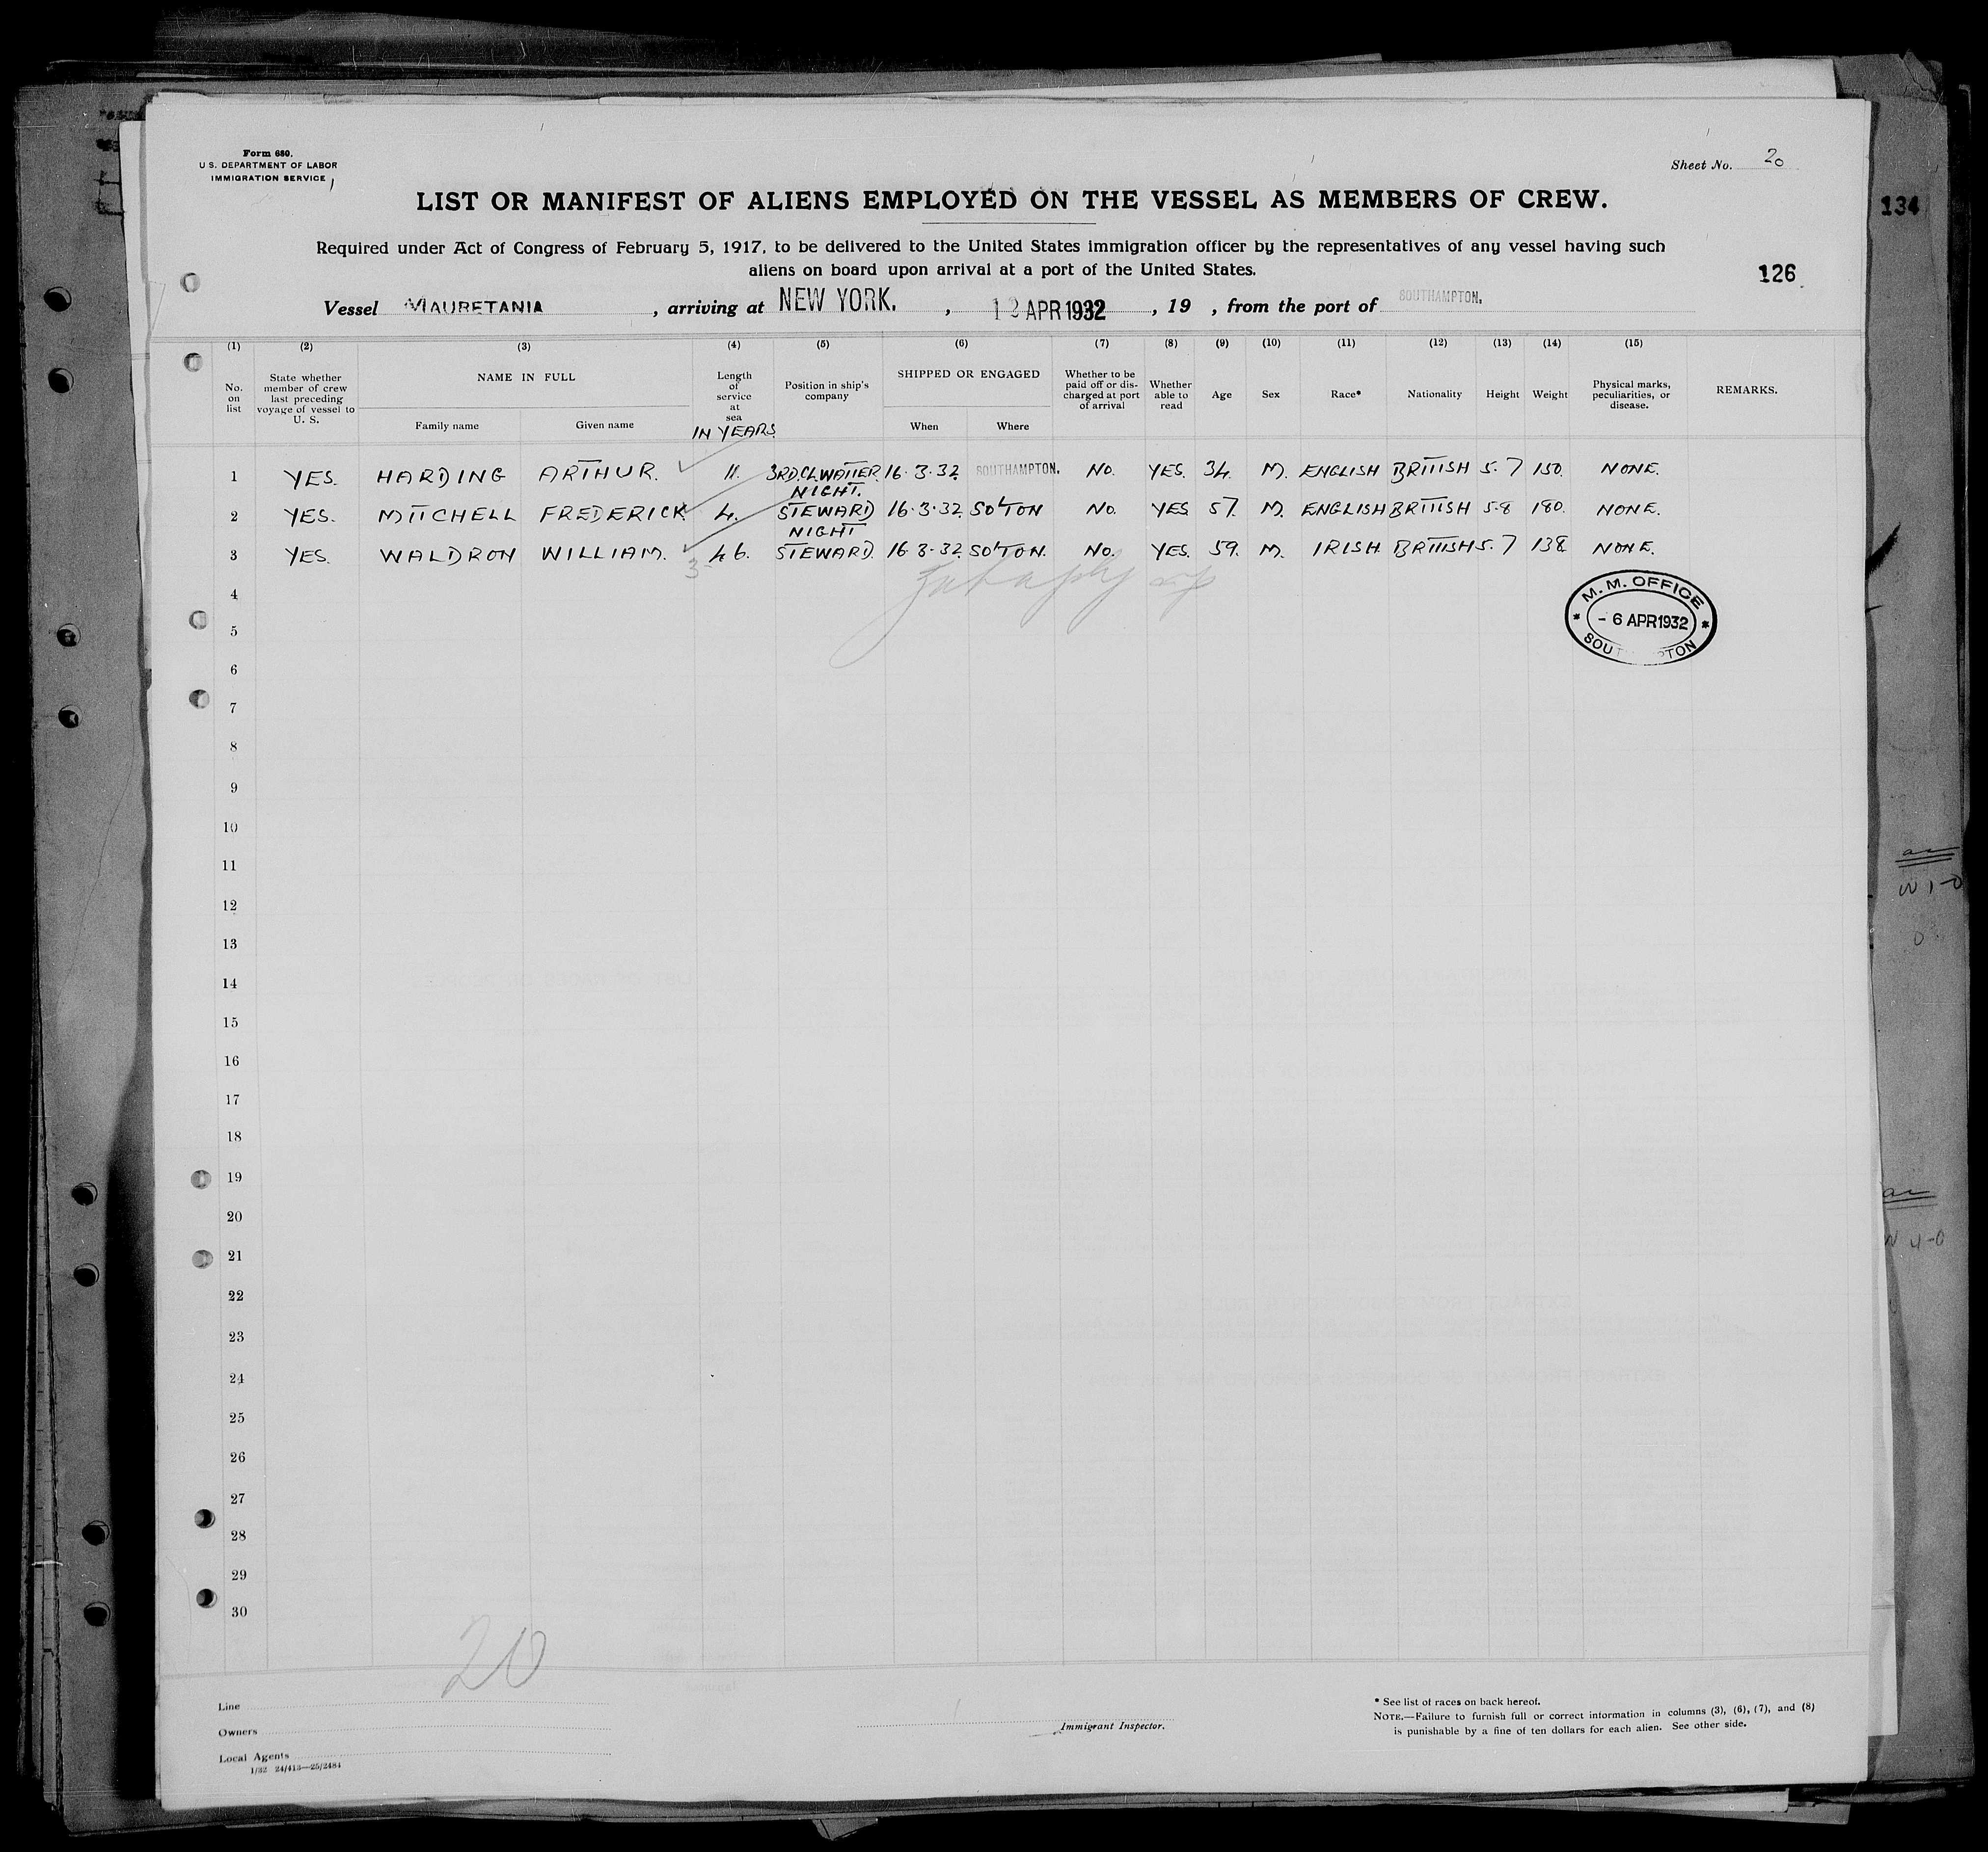 Form 680.
U S. DEPARTMENT OF LABOR
IMMIGRATION SERVICE
Sheet No. 20
LIST OR MANIFEST OF ALIENS EMPLOYED ON THE VESSEL AS MEMBERS OF CREW.
134
Required under Act of Congress of February 5, 1917, to be delivered to the United States immigration officer by the representatives of any vessel having such
aliens on board upon arrival at a port of the United States.
126
Vessel MAURETANIA, arriving at NEW YORK., 12 APR 1932, 19 , from the port of SOUTHAMPTON.
(1) (2) (3) (4) (5) (6) (7) (8) (9) (10) (11) (12) (13) (14) (15)
No. on list
State whether member of crew last preceding voyage of vessel to U. S.
NAME IN FULL
Family name
Given name
Length of service at sea
IN YEARS
Position in ship's company
SHIPPED OR ENGAGED
When
Where
Whether to be paid off or dis-charged at port of arrival
Whether able to read
Age
Sex
Race*
Nationality
Height
Weight
Physical marks, peculiarities, or disease.
REMARKS.
1 YES. HARDING ARTHUR. 11. 3RD.CL.WAITER 16.3.32. SOUTHAMPTON. No. YES. 34. M. ENGLISH BRITISH 5.7 150. NONE.
2 YES. MITCHELL FREDERICK 4. NIGHT. STEWARD 16.3.32. SO'TON No. YES 57. M. ENGLISH BRITISH 5.8 180. NONE.
3 YES. WALDRON WILLIAM. 46. NIGHT STEWARD. 16.3.32. SO'TON. No. YES. 59. M. IRISH BRITISH 5.7 138 NONE.
3
4
M. M. OFFICE
- 6 APR 1932
SOUT PTON
5
6
7
8
9
10
11
12
13
14
15
16
17
18
19
20
21
22
23
24
25
26
27
28
29
30
20
Line
Owners
Local Agents
1/32 24/413—25/2484
Immigrant Inspector.
* See list of races on back hereof.
NOTE.—Failure to furnish full or correct information in columns (3), (6), (7), and (8)
is punishable by a fine of ten dollars for each alien. See other side.